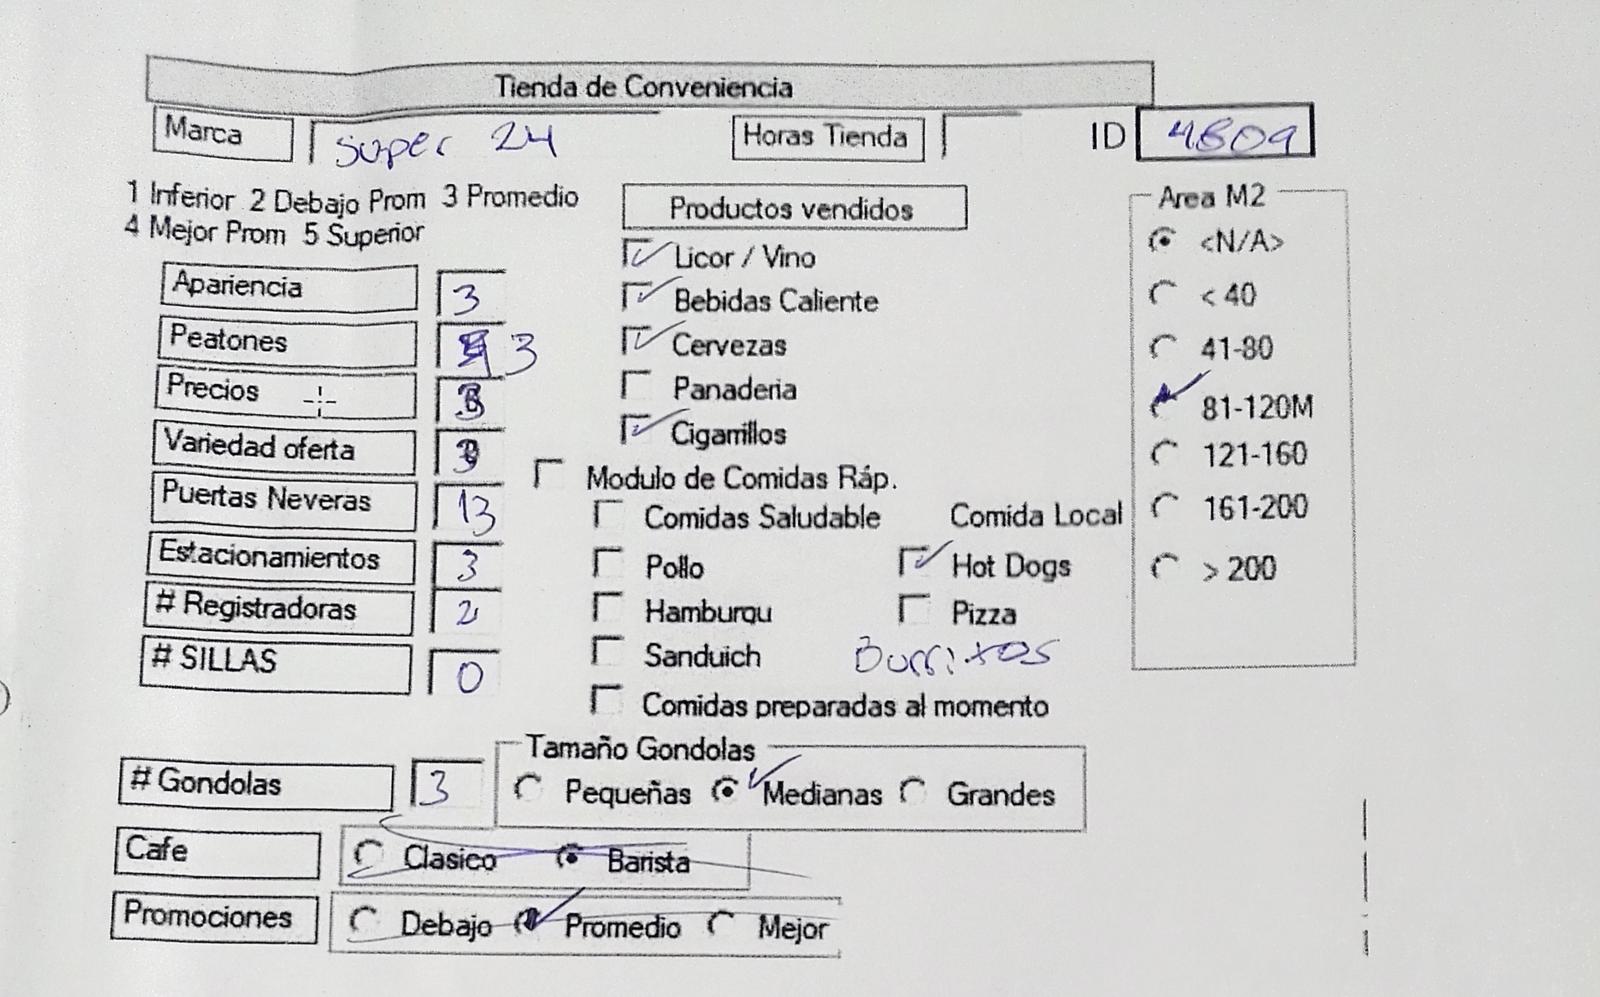 Tienda de Conveniencia
Marca super 24 Horas Tienda ID 4809
1 Inferior 2 Debajo Prom 3 Promedio
4 Mejor Prom 5 Superior
Productos vendidos
Area M2
Licor / Vino
<N/A>
Apariencia 3
Bebidas Caliente
< 40
Peatones 3
Cervezas
41-80
Precios 3
Panaderia
81-120M
Variedad oferta
Cigarrillos
121-160
Modulo de Comidas Ráp.
Puertas Neveras 13
Comidas Saludable Comida Local
161-200
Estacionamientos 3
Pollo Hot Dogs
> 200
# Registradoras 2
Hamburqu Pizza
# SILLAS 0
Sanduich Burritos
Comidas preparadas al momento
Tamaño Gondolas
# Gondolas 3 Pequeñas Medianas Grandes
Cafe Clasico Barista
Promociones Debajo Promedio Mejor